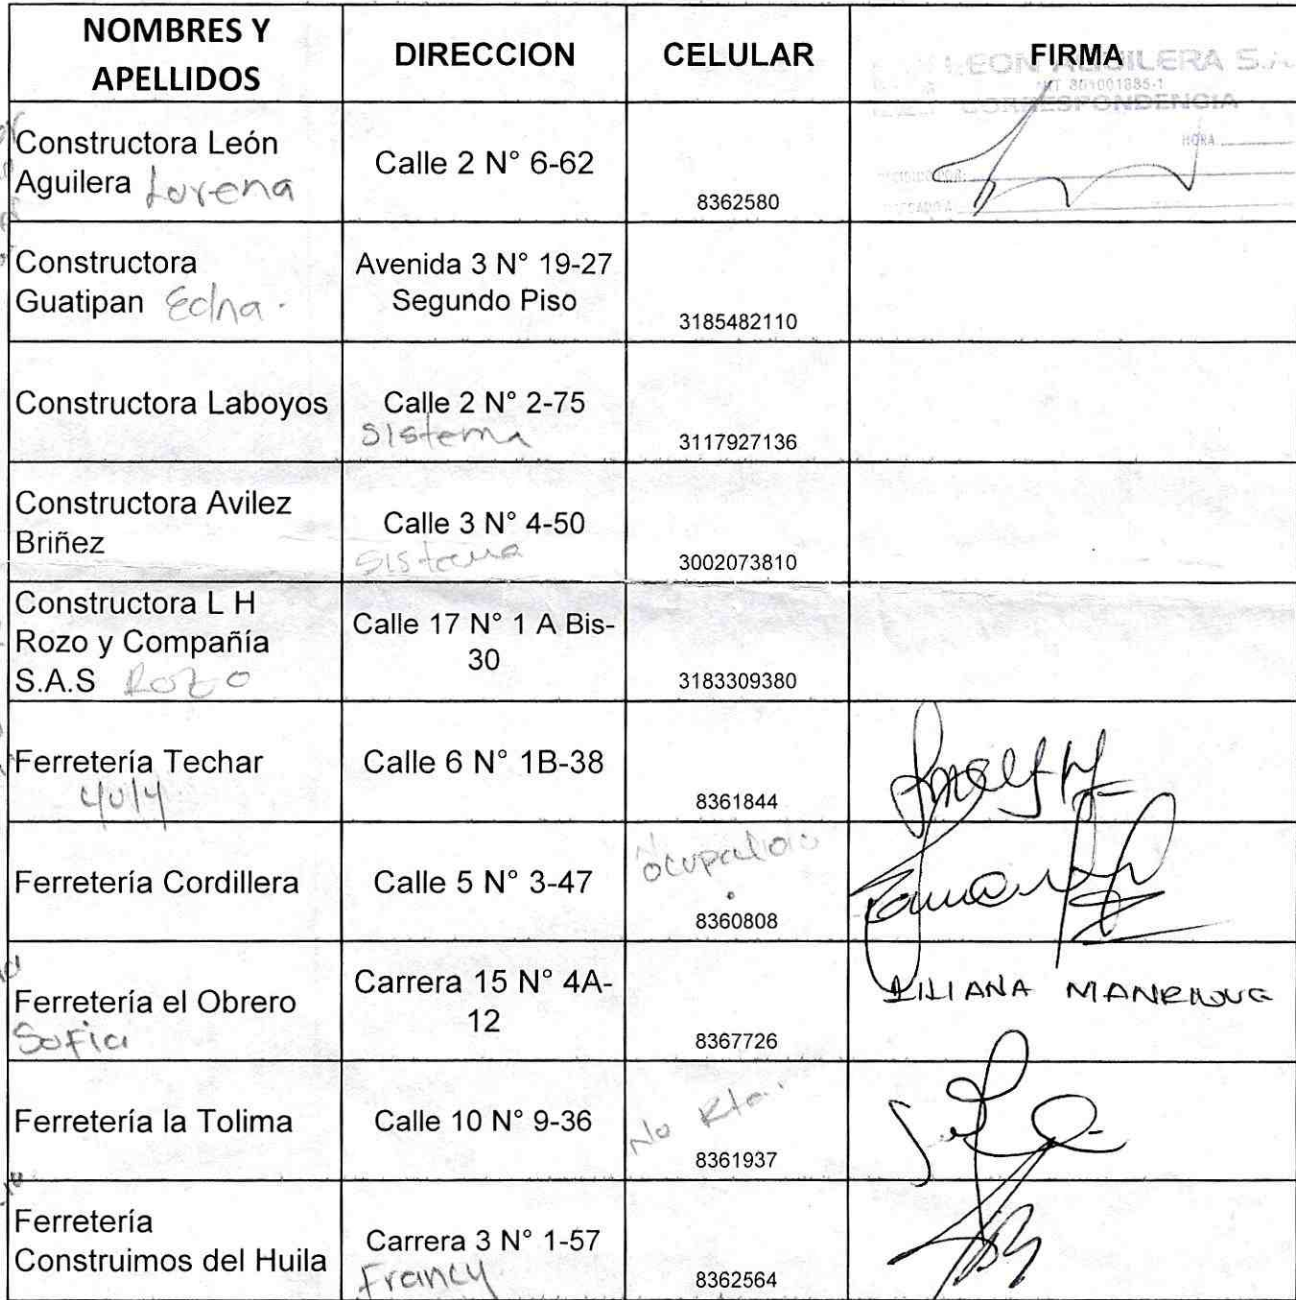 NOMBRES Y
APELLIDOS
DIRECCION
CELULAR
FIRMA
LEON AGUILERA S.A.
NIT 801001885-1
CORRESPONDENCIA
HORA
Constructora León
Aguilera Lorena
Calle 2 N° 6-62
8362580
Constructora
Guatipan Edna.
Avenida 3 N° 19-27
Segundo Piso
3185482110
Constructora Laboyos
Calle 2 N° 2-75
sistema
3117927136
Constructora Avilez
Briñez
Calle 3 N° 4-50
sistema
3002073810
Constructora L H
Rozo y Compañía
S.A.S Rozo
Calle 17 N° 1 A Bis-
30
3183309380
Ferretería Techar
Yuly
Calle 6 N° 1B-38
8361844
Ferretería Cordillera
Calle 5 N° 3-47
ocupado
8360808
Ferretería el Obrero
Sofia
Carrera 15 N° 4A-
12
8367726
LILIANA MANRIQUE
Ferretería la Tolima
Calle 10 N° 9-36
No Rta..
8361937
Ferretería
Construimos del Huila
Carrera 3 N° 1-57
Francy
8362564